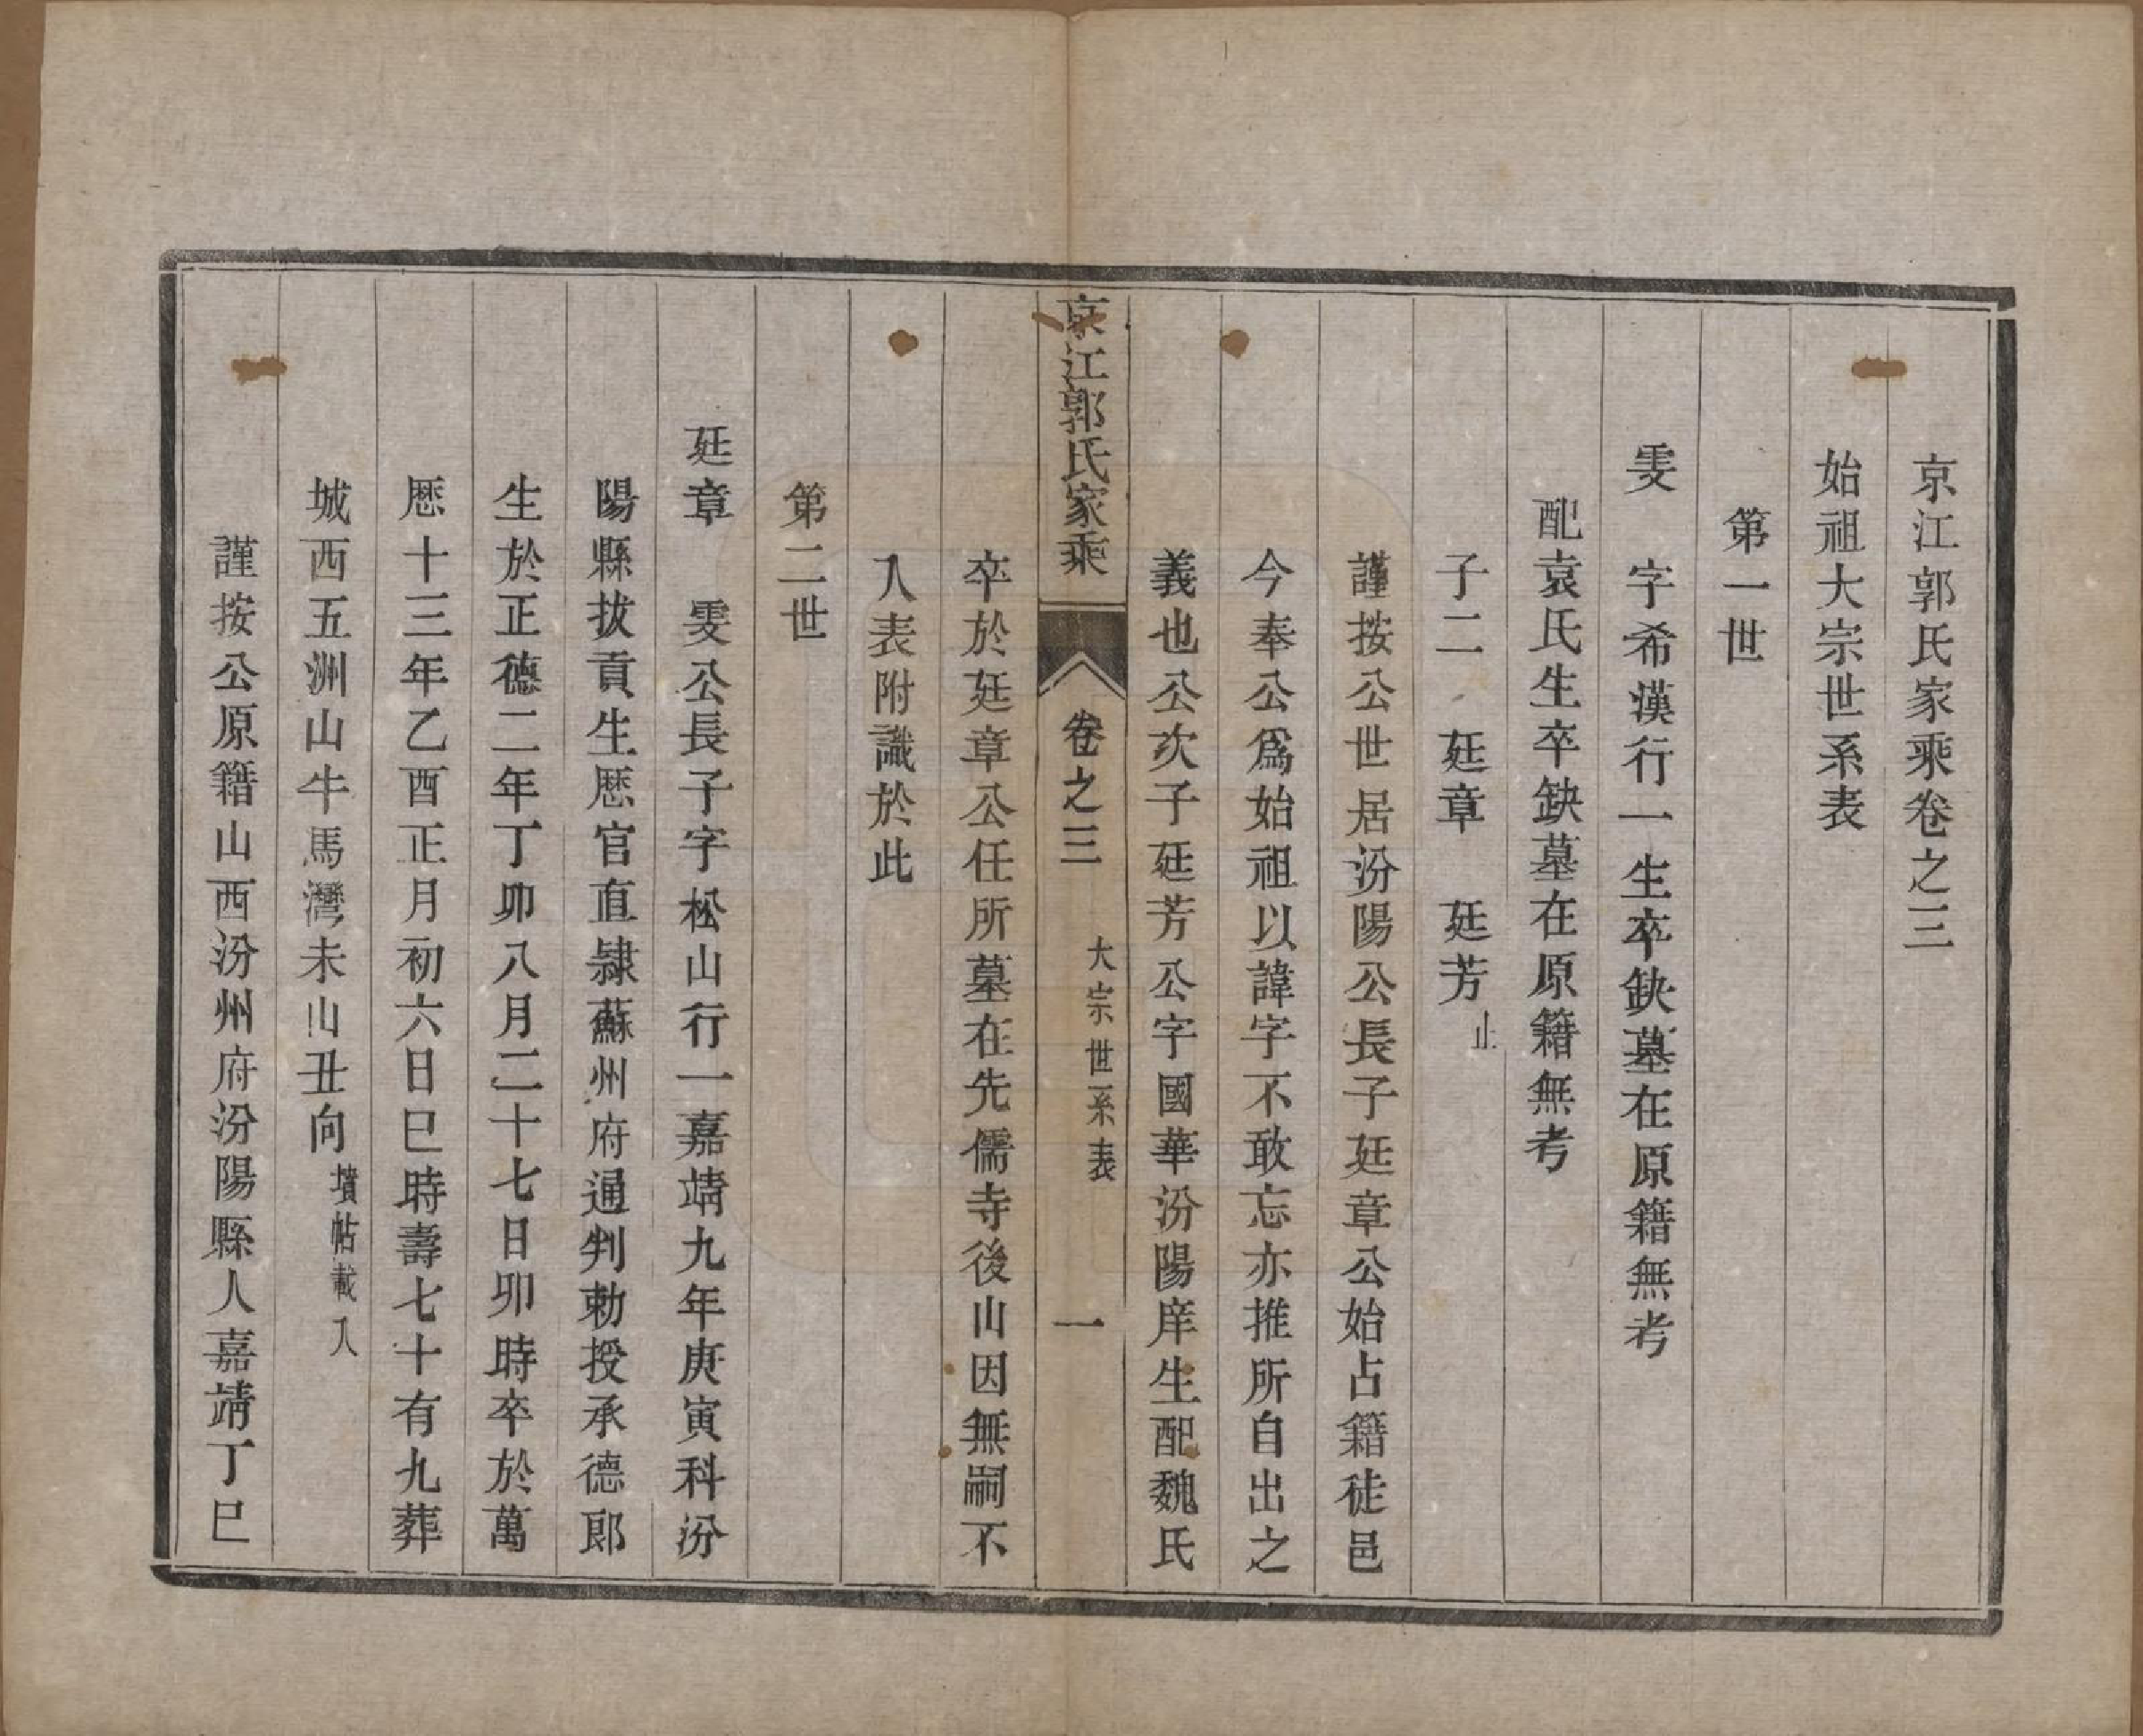 京江郭氏家乘卷之三
始祖大宗世系表
第一世
雯　字希漢行一生卒缺墓在原籍無考
配袁氏生卒缺墓在原籍無考
子二　廷章　廷芳止
謹按公世居汾陽公長子廷章公始占籍徒邑
今奉公爲始祖以諱字不敢忘亦推所自出之
義也公次子廷芳公字國華汾陽庠生配魏氏
京江郭氏家乘　卷之三　大宗世系表　一
卒於廷章公任所墓在先儒寺後山因無嗣不
入表附識於此
第二世
廷章　雯公長子字松山行一嘉靖九年庚寅科汾
陽縣拔貢生歷官直隸蘇州府通判勅授承德郎
生於正德二年丁卯八月二十七日卯時卒於萬
歷十三年乙酉正月初六日巳時壽七十有九葬
城西五洲山牛馬灣未山丑向墳帖載入
謹按公原籍山西汾州府汾陽縣人嘉靖丁巳